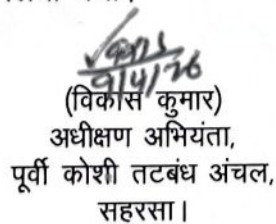 9/4/26
(विकास कुमार)
अधीक्षण अभियंता,
पूर्वी कोशी तटबंध अंचल,
सहरसा।